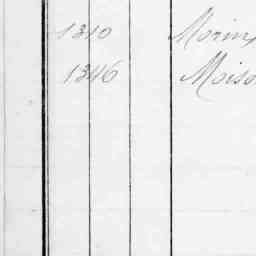 1310 Morin
1346 Moiso